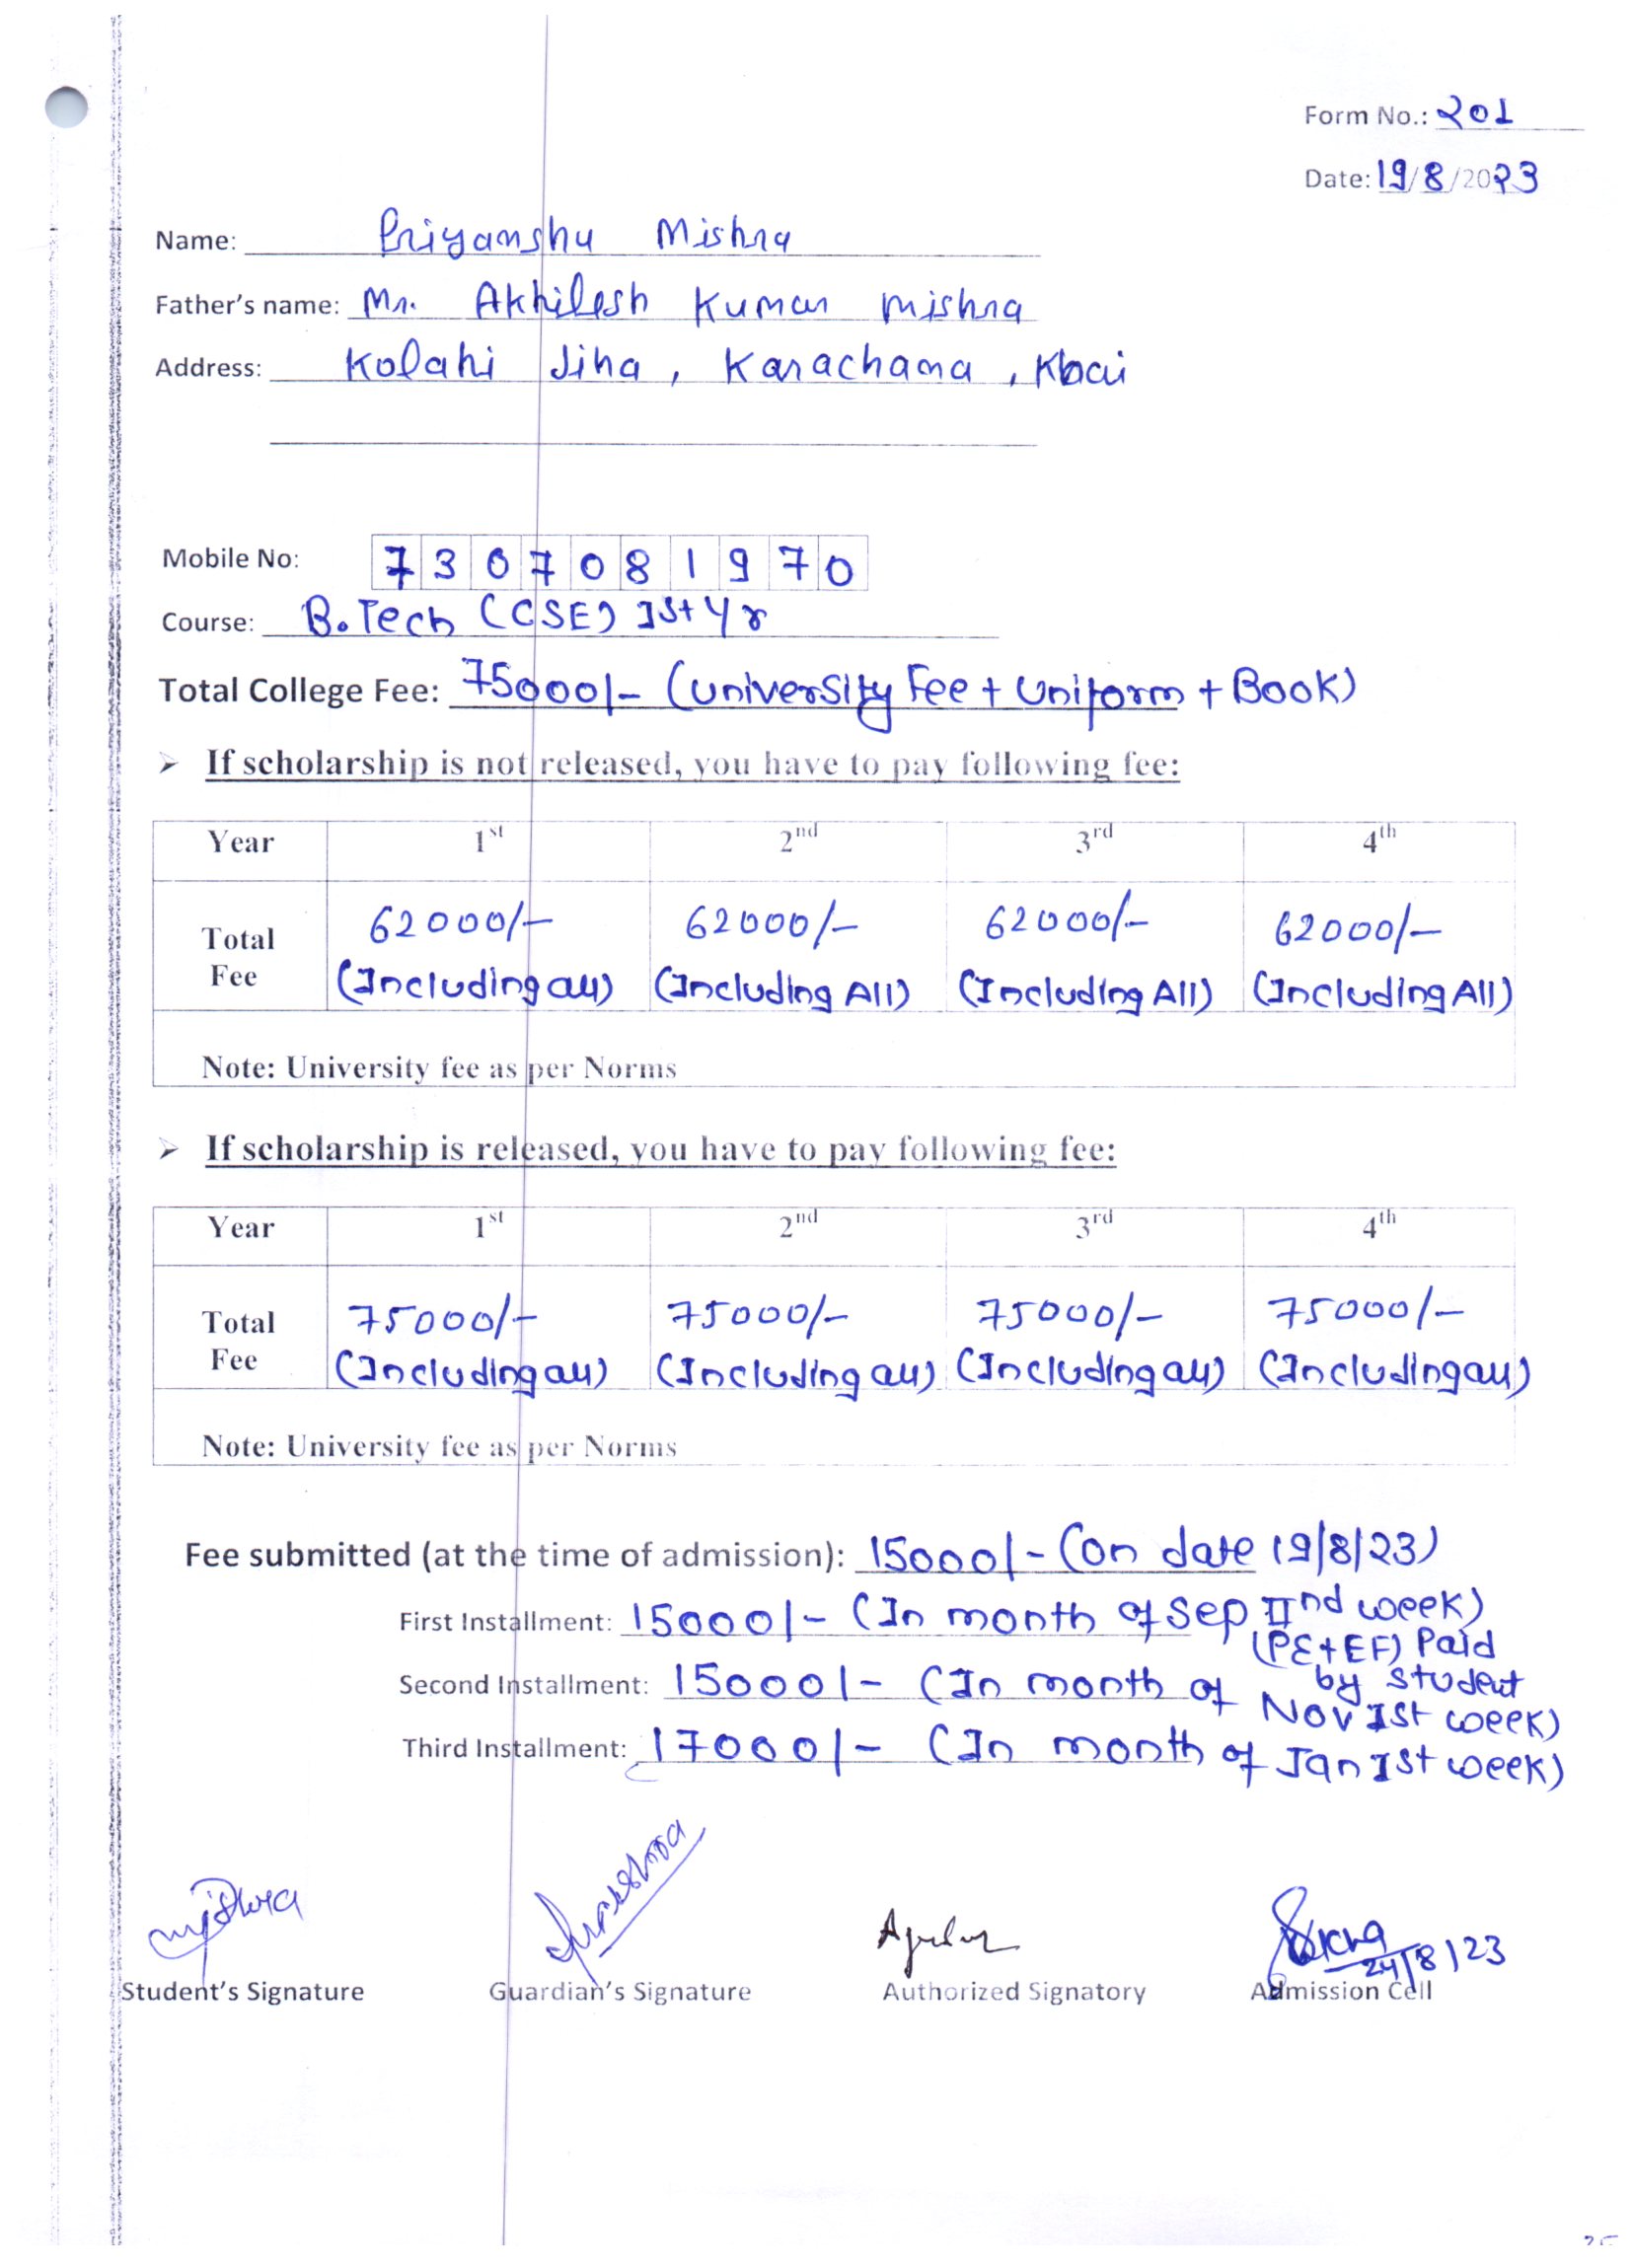 Form No.: 201
Date: 19/8/2023
Name: Priyanshu Mishra
Father's name: Mr. Akhilesh Kumar Mishra
Address: Kolahi Jiha, Karachana,
Mobile No: 7307081970
Course: B.Tech (CSE) Ist Yr
Total College Fee: 75000/- (University Fee + Uniform + Book)
➢ If scholarship is not released, you have to pay following fee:
Year 1st 2nd 3rd 4th
Total Fee 62000/- 62000/- 62000/- 62000/-
(Including all) (Including All) (Including All) (Including All)
Note: University fee as per Norms
➢ If scholarship is released, you have to pay following fee:
Year 1st 2nd 3rd 4th
Total Fee 75000/- 75000/- 75000/- 75000/-
(Including all) (Including all) (Including all) (Including all)
Note: University fee as per Norms
Fee submitted (at the time of admission): 15000/- (on date 19/8/23)
First Installment: 15000/- (In month of Sep IInd week)
(PE+EF) Paid by student
Second Installment: 15000/- (In month of Nov Ist week)
Third Installment: 17000/- (In month of Jan Ist week)
Mishra
24/8/23
Student's Signature Guardian's Signature Authorized Signatory Admission Cell